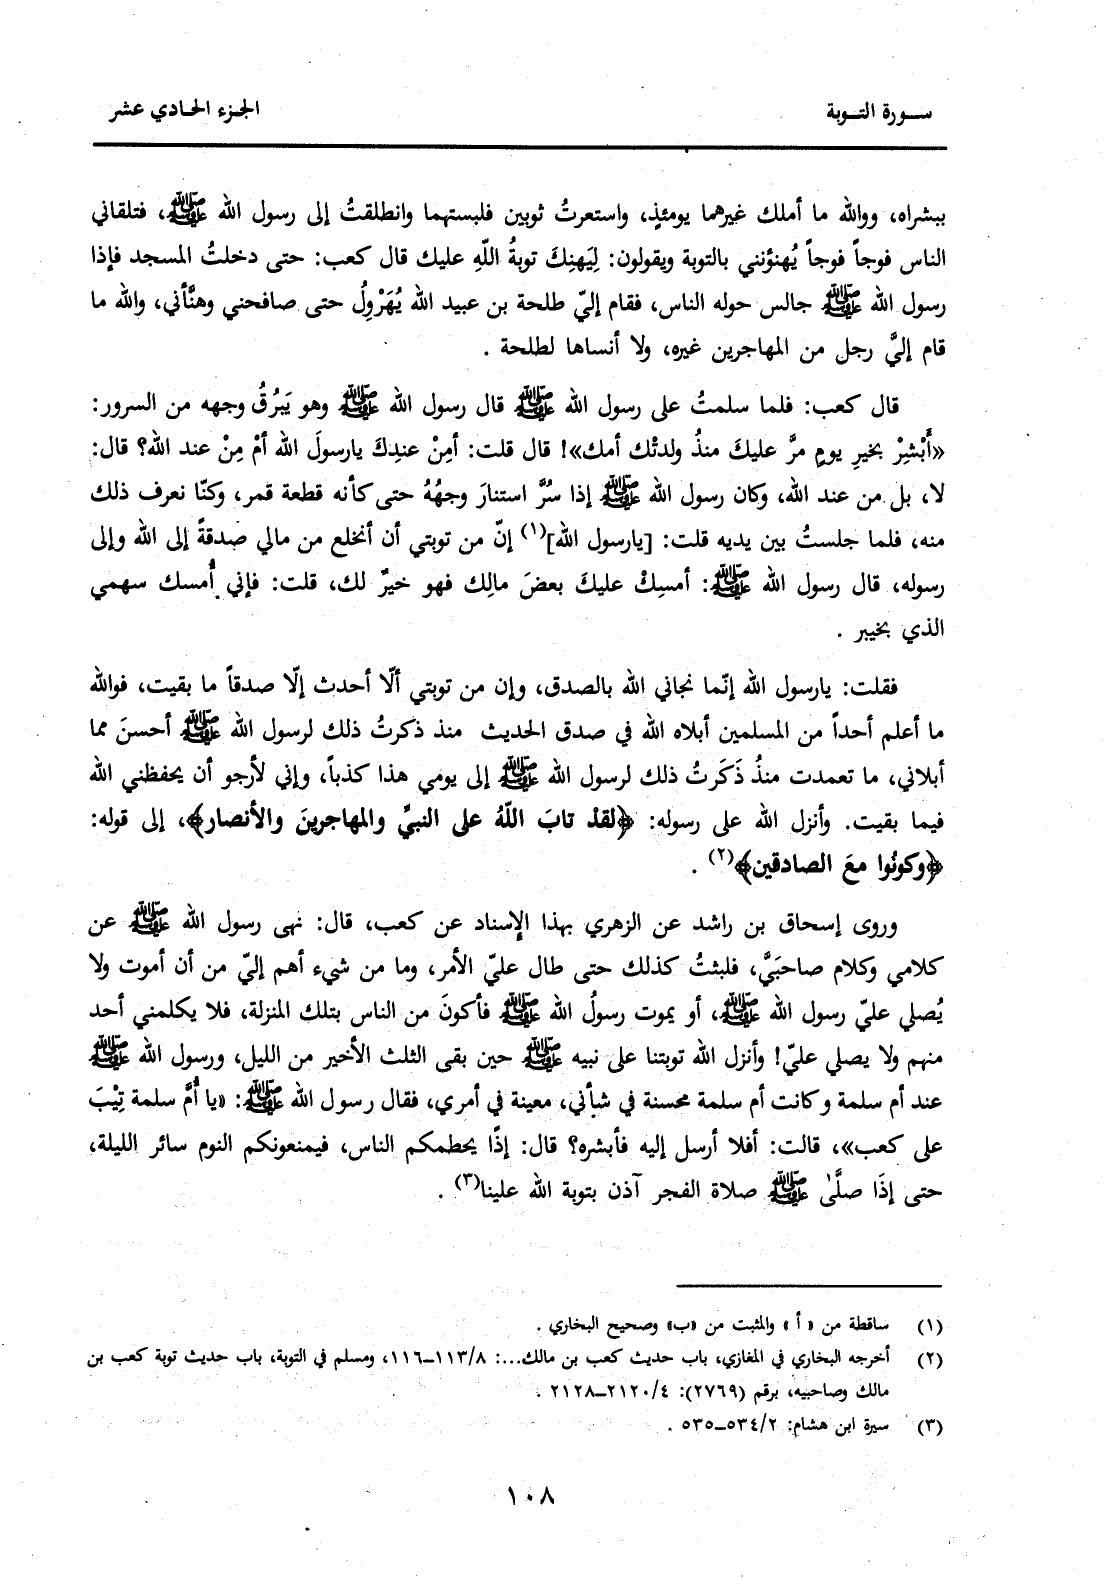 سورة التوبة الجزء الحادي عشر
ببشراه، ووالله ما أملك غيرهما يومئذٍ، واستعرتُ ثوبين فلبستهما وانطلقتُ إلى رسول الله ﷺ، فتلقاني
الناس فوجاً فوجاً يُهنؤنني بالتوبة ويقولون: لِيَهنِكَ توبةُ اللّهِ عليك قال كعب: حتى دخلتُ المسجد فإذا
رسول الله ﷺ جالس حوله الناس، فقام إليّ طلحة بن عبيد الله يُهَرْوِلُ حتى صافحني وهنَّأني، والله ما
قام إليَّ رجل من المهاجرين غيره، ولا أنساها لطلحة .
قال كعب: فلما سلمتُ على رسول الله ﷺ قال رسول الله ﷺ وهو يَبرُقُ وجهه من السرور:
«أَبْشِرْ بخيرِ يومٍ مرَّ عليكَ منذُ ولدتْك أمك»! قال قلت: أمِنْ عندِكَ يارسولَ الله أمْ مِنْ عند الله؟ قال:
لا، بل من عند الله، وكان رسول الله ﷺ إذا سُرَّ استنارَ وجهُهُ حتى كأنه قطعة قمر، وكنّا نعرف ذلك
منه، فلما جلستُ بين يديه قلت: [يارسول الله](١) إنّ من توبتي أن أنخلع من مالي صدقةً إلى الله وإلى
رسوله، قال رسول الله ﷺ: أمسِكْ عليكَ بعضَ مالِك فهو خيرٌ لك، قلت: فإني أُمسك سهمي
الذي بخيبر .
فقلت: يارسول الله إنّما نجاني الله بالصدق، وإن من توبتي ألّا أحدث إلّا صدقاً ما بقيت، فوالله
ما أعلم أحداً من المسلمين أبلاه الله في صدق الحديث منذ ذكرتُ ذلك لرسول الله ﷺ أحسنَ مما
أبلاني، ما تعمدت منذُ ذَكَرتُ ذلك لرسول الله ﷺ إلى يومي هذا كذباً، وإني لأرجو أن يحفظني الله
فيما بقيت. وأنزل الله على رسوله: ﴿لقدْ تابَ اللّهُ على النبيِّ والمهاجرينَ والأنصار﴾، إلى قوله:
﴿وكونُوا معَ الصادقين﴾(٢) .
وروى إسحاق بن راشد عن الزهري بهذا الإسناد عن كعب، قال: نهى رسول الله ﷺ عن
كلامي وكلام صاحبَيَّ، فلبثتُ كذلك حتى طال عليّ الأمر، وما من شيء أهم إليّ من أن أموت ولا
يُصلي عليّ رسول الله ﷺ، أو يموت رسولُ الله ﷺ فأكونَ من الناس بتلك المنزلة، فلا يكلمني أحد
منهم ولا يصلي عليّ! وأنزل الله توبتنا على نبيه ﷺ حين بقى الثلث الأخير من الليل، ورسول الله ﷺ
عند أم سلمة وكانت أم سلمة محسنة في شأني، معينة في أمري، فقال رسول الله ﷺ: «يا أُمَّ سلمة تِيْبَ
على كعب»، قالت: أفلا أرسل إليه فأبشره؟ قال: إذًا يحطمكم الناس، فيمنعونكم النوم سائر الليلة،
حتى إذَا صلَّىٰ ﷺ صلاة الفجر آذن بتوبة الله علينا(٣) .
(١) ساقطة من « أ » والمثبت من «ب» وصحيح البخاري .
(٢) أخرجه البخاري في المغازي، باب حديث كعب بن مالك...: ٨/١١٣–١١٦، ومسلم في التوبة، باب حديث توبة كعب بن
مالك وصاحبيه، برقم (٢٧٦٩): ٤/٢١٢٠–٢١٢٨ .
(٣) سيرة ابن هشام: ٢/٥٣٤–٥٣٥ .
١٠٨